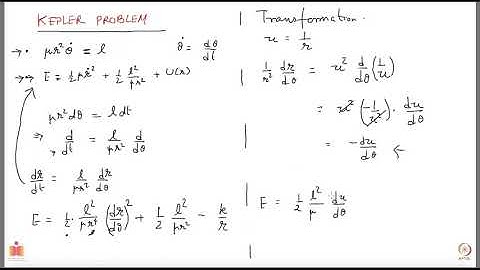 KEPLER PROBLEM
→ • μr²θ̇ = l     θ̇ = dθ/dt
→→ E = ½μṙ² + ½ l²/μr² + U(r)
μr²dθ = l dt
⇒ d/dt = l/μr² d/dθ
dr/dt = l/μr² dr/dθ
E = ½ · l²/μr⁴ (dr/dθ)² + ½ l²/μr² − k/r
Transformation.
u = 1/r
1/r² dr/dθ = u² d/dθ (1/u)
= u² (−1/u²) · du/dθ
= −du/dθ ←
E = ½ l²/μ du/dθ